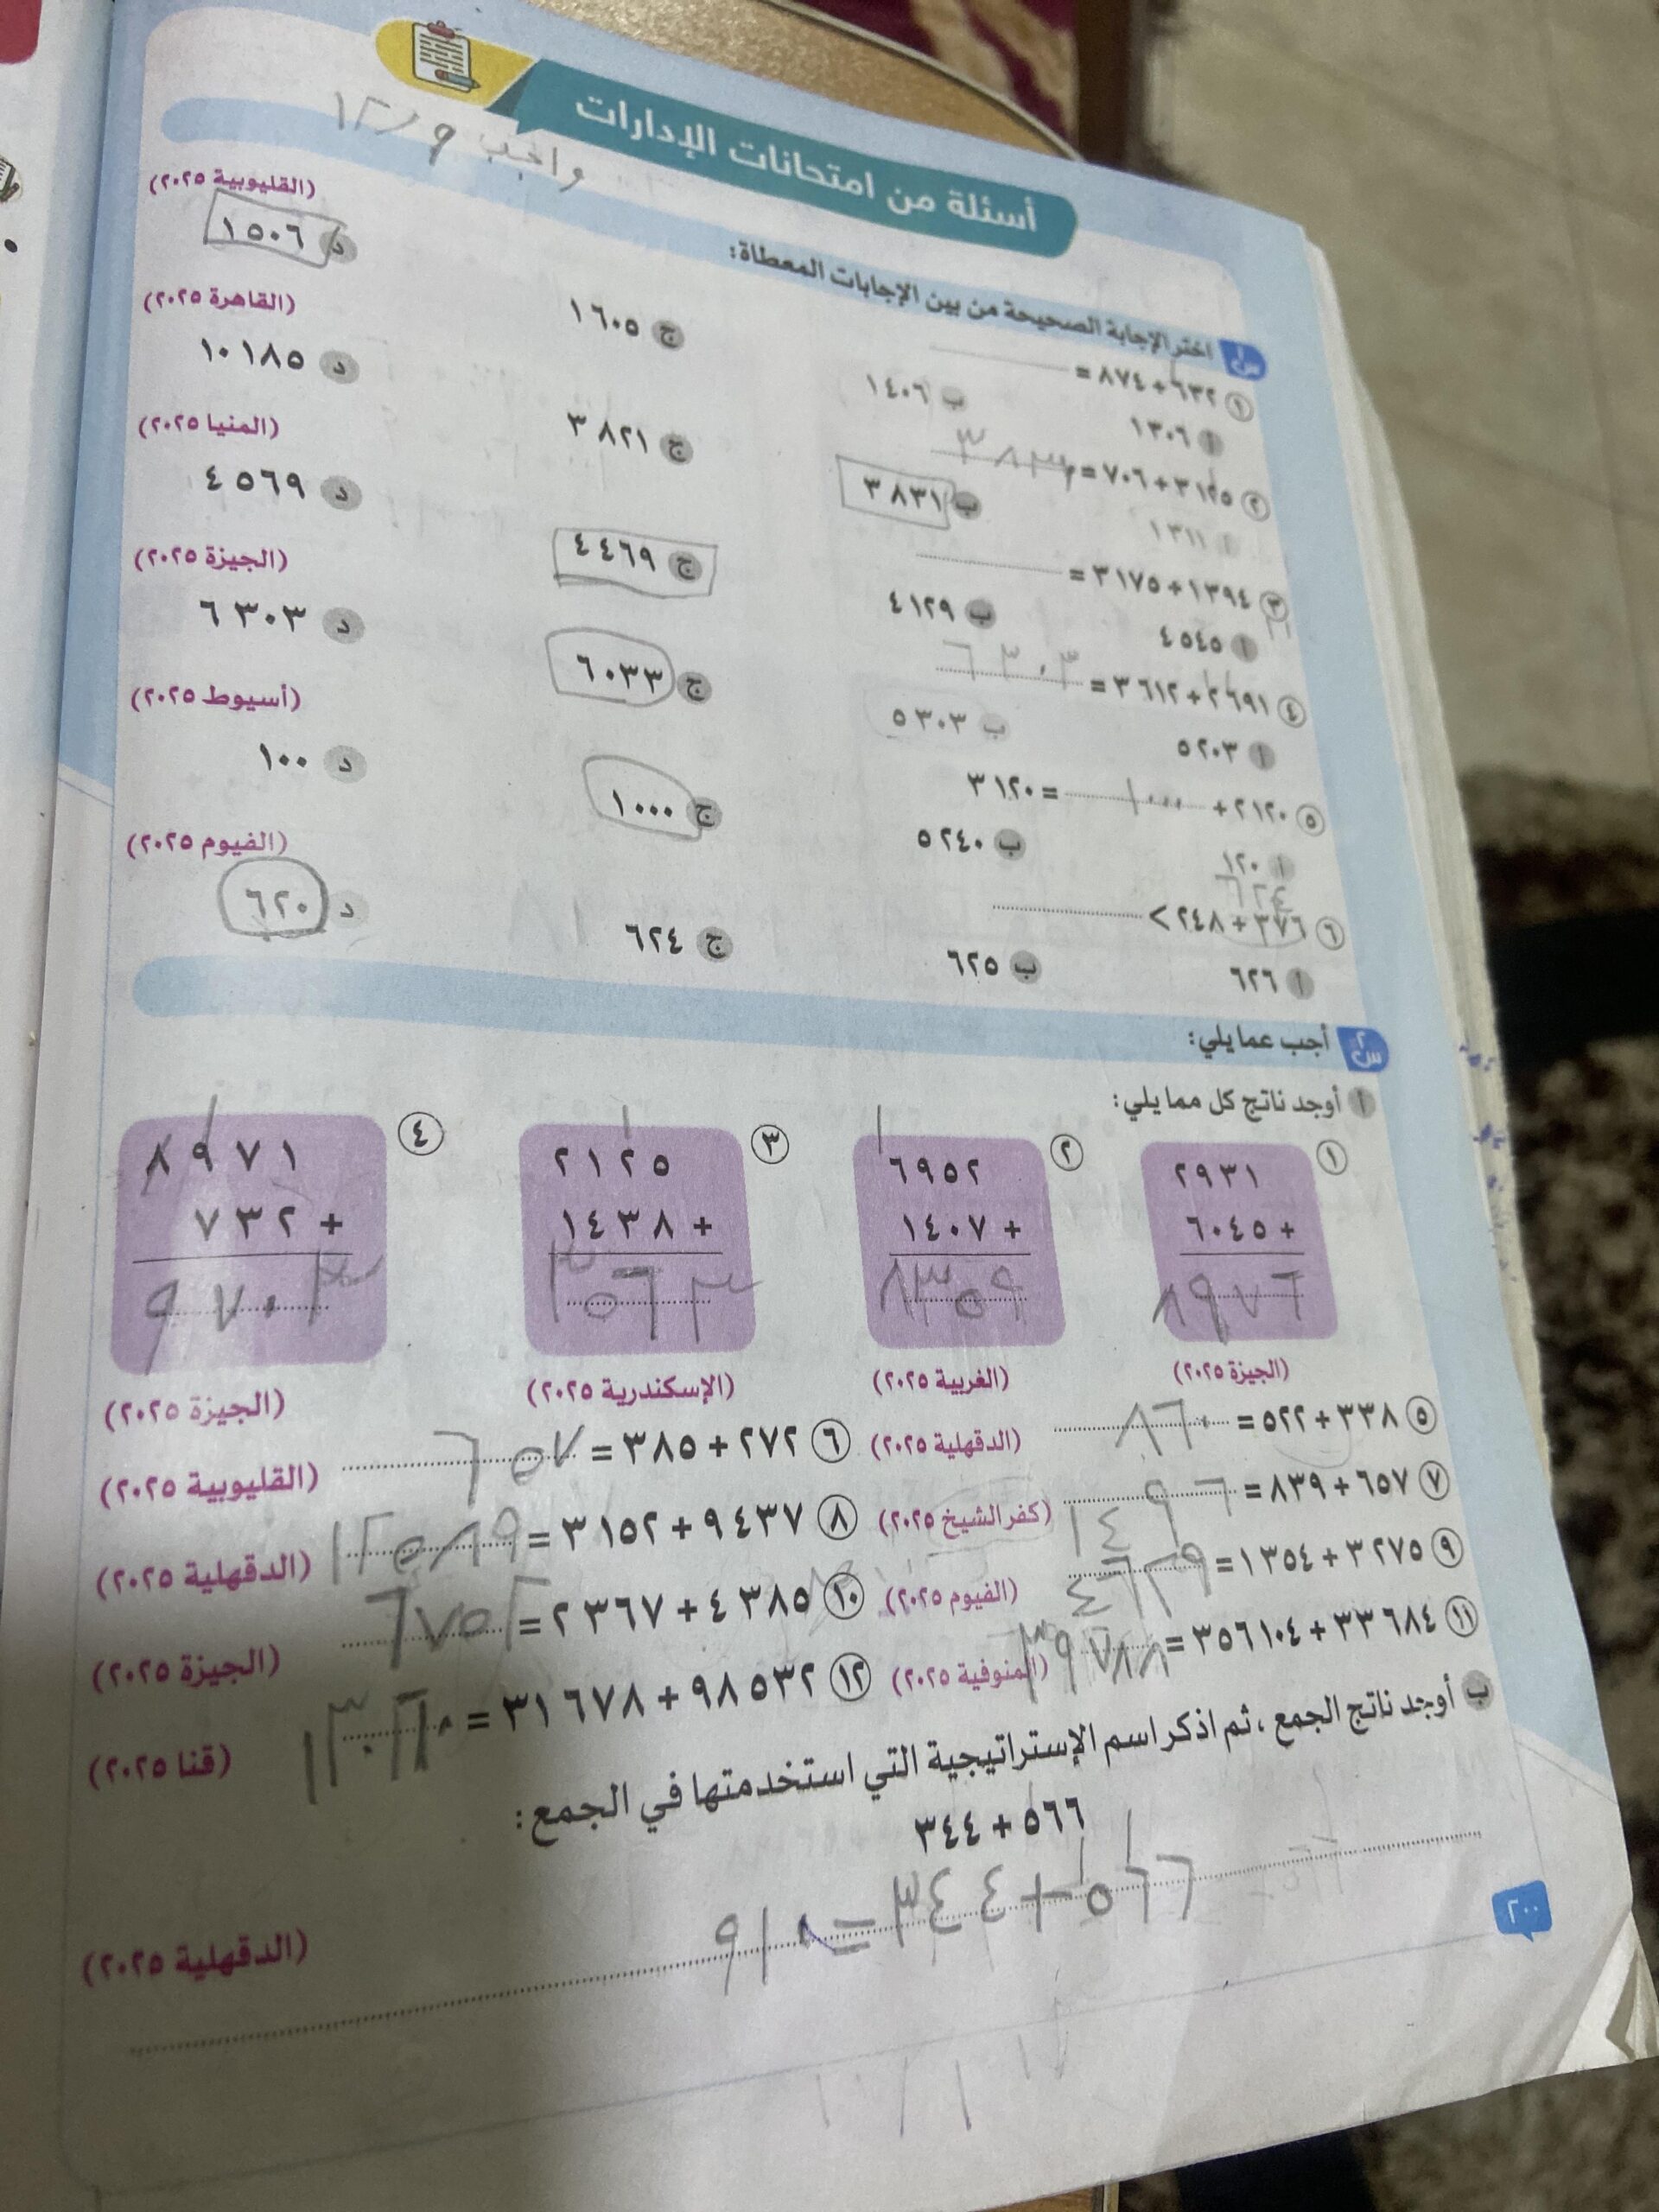 أسئلة من امتحانات الإدارات
واجب ١٢/٩
س١ اختر الإجابة الصحيحة من بين الإجابات المعطاة:
١ ٦٣٢ + ٨٧٤ = (القليوبية ٢٠٢٥)
أ ١٣٠٦ ب ١٤٠٦ ج ١٦٠٥ د ١٥٠٦
٢ ٣١٢٥ + ٧٠٦ = ٣٨٣١ (القاهرة ٢٠٢٥)
أ ١٣١١ ب ٣٨٣١ ج ٣٨٢١ د ١٠١٨٥
٣ ١٣٩٤ + ٣١٧٥ = (المنيا ٢٠٢٥)
أ ٤٥٤٥ ب ٤١٢٩ ج ٤٤٦٩ د ٤٥٦٩
٤ ٢٦٩١ + ٣٦١٢ = ٦٣٠٣ (الجيزة ٢٠٢٥)
أ ٥٢٠٣ ب ٥٣٠٣ ج ٦٠٣٣ د ٦٣٠٣
٥ ٢١٢٠ + ١٠٠٠ = ٣١٢٠ (أسيوط ٢٠٢٥)
أ ١٢٠ ب ٥٢٤٠ ج ١٠٠٠ د ١٠٠
٦٢٤
٦ ٣٧٦ + ٢٤٨ > (الفيوم ٢٠٢٥)
أ ٦٢٦ ب ٦٢٥ ج ٦٢٤ د ٦٢٠
س٢ أجب عما يلي:
أ أوجد ناتج كل مما يلي:
١ ٢ ٣ ٤
١ ١ ١
٢٩٣١ ٦٩٥٢ ٢١٢٥ ٨٩٧١
٦٠٤٥ + ١٤٠٧ + ١٤٣٨ + ٧٣٢ +
٨٩٧٦ ٨٣٥٩ ٣٥٦٣ ٩٧٠٣
(الجيزة ٢٠٢٥) (الغربية ٢٠٢٥) (الإسكندرية ٢٠٢٥) (الجيزة ٢٠٢٥)
٥ ٣٣٨ + ٥٢٢ = ٨٦٠ (الدقهلية ٢٠٢٥) ٦ ٢٧٢ + ٣٨٥ = ٦٥٧ (القليوبية ٢٠٢٥)
٧ ٦٥٧ + ٨٣٩ = ١٤٩٦ (كفر الشيخ ٢٠٢٥) ٨ ٩٤٣٧ + ٣١٥٢ = ١٢٥٨٩ (الدقهلية ٢٠٢٥)
٩ ٣٢٧٥ + ١٣٥٤ = ٤٦٢٩ (الفيوم ٢٠٢٥) ١٠ ٤٣٨٥ + ٢٣٦٧ = ٦٧٥٢ (الجيزة ٢٠٢٥)
١١ ٣٣٦٨٤ + ٣٥٦١٠٤ = ٣٨٩٧٨٨ (المنوفية ٢٠٢٥) ١٢ ٩٨٥٣٢ + ٣١٦٧٨ = (قنا ٢٠٢٥)
ب أوجد ناتج الجمع، ثم اذكر اسم الإستراتيجية التي استخدمتها في الجمع:
٥٦٦ + ٣٤٤
٥٦٦ + ٣٤٤ = ٩١٠
(الدقهلية ٢٠٢٥)
٢٠٠